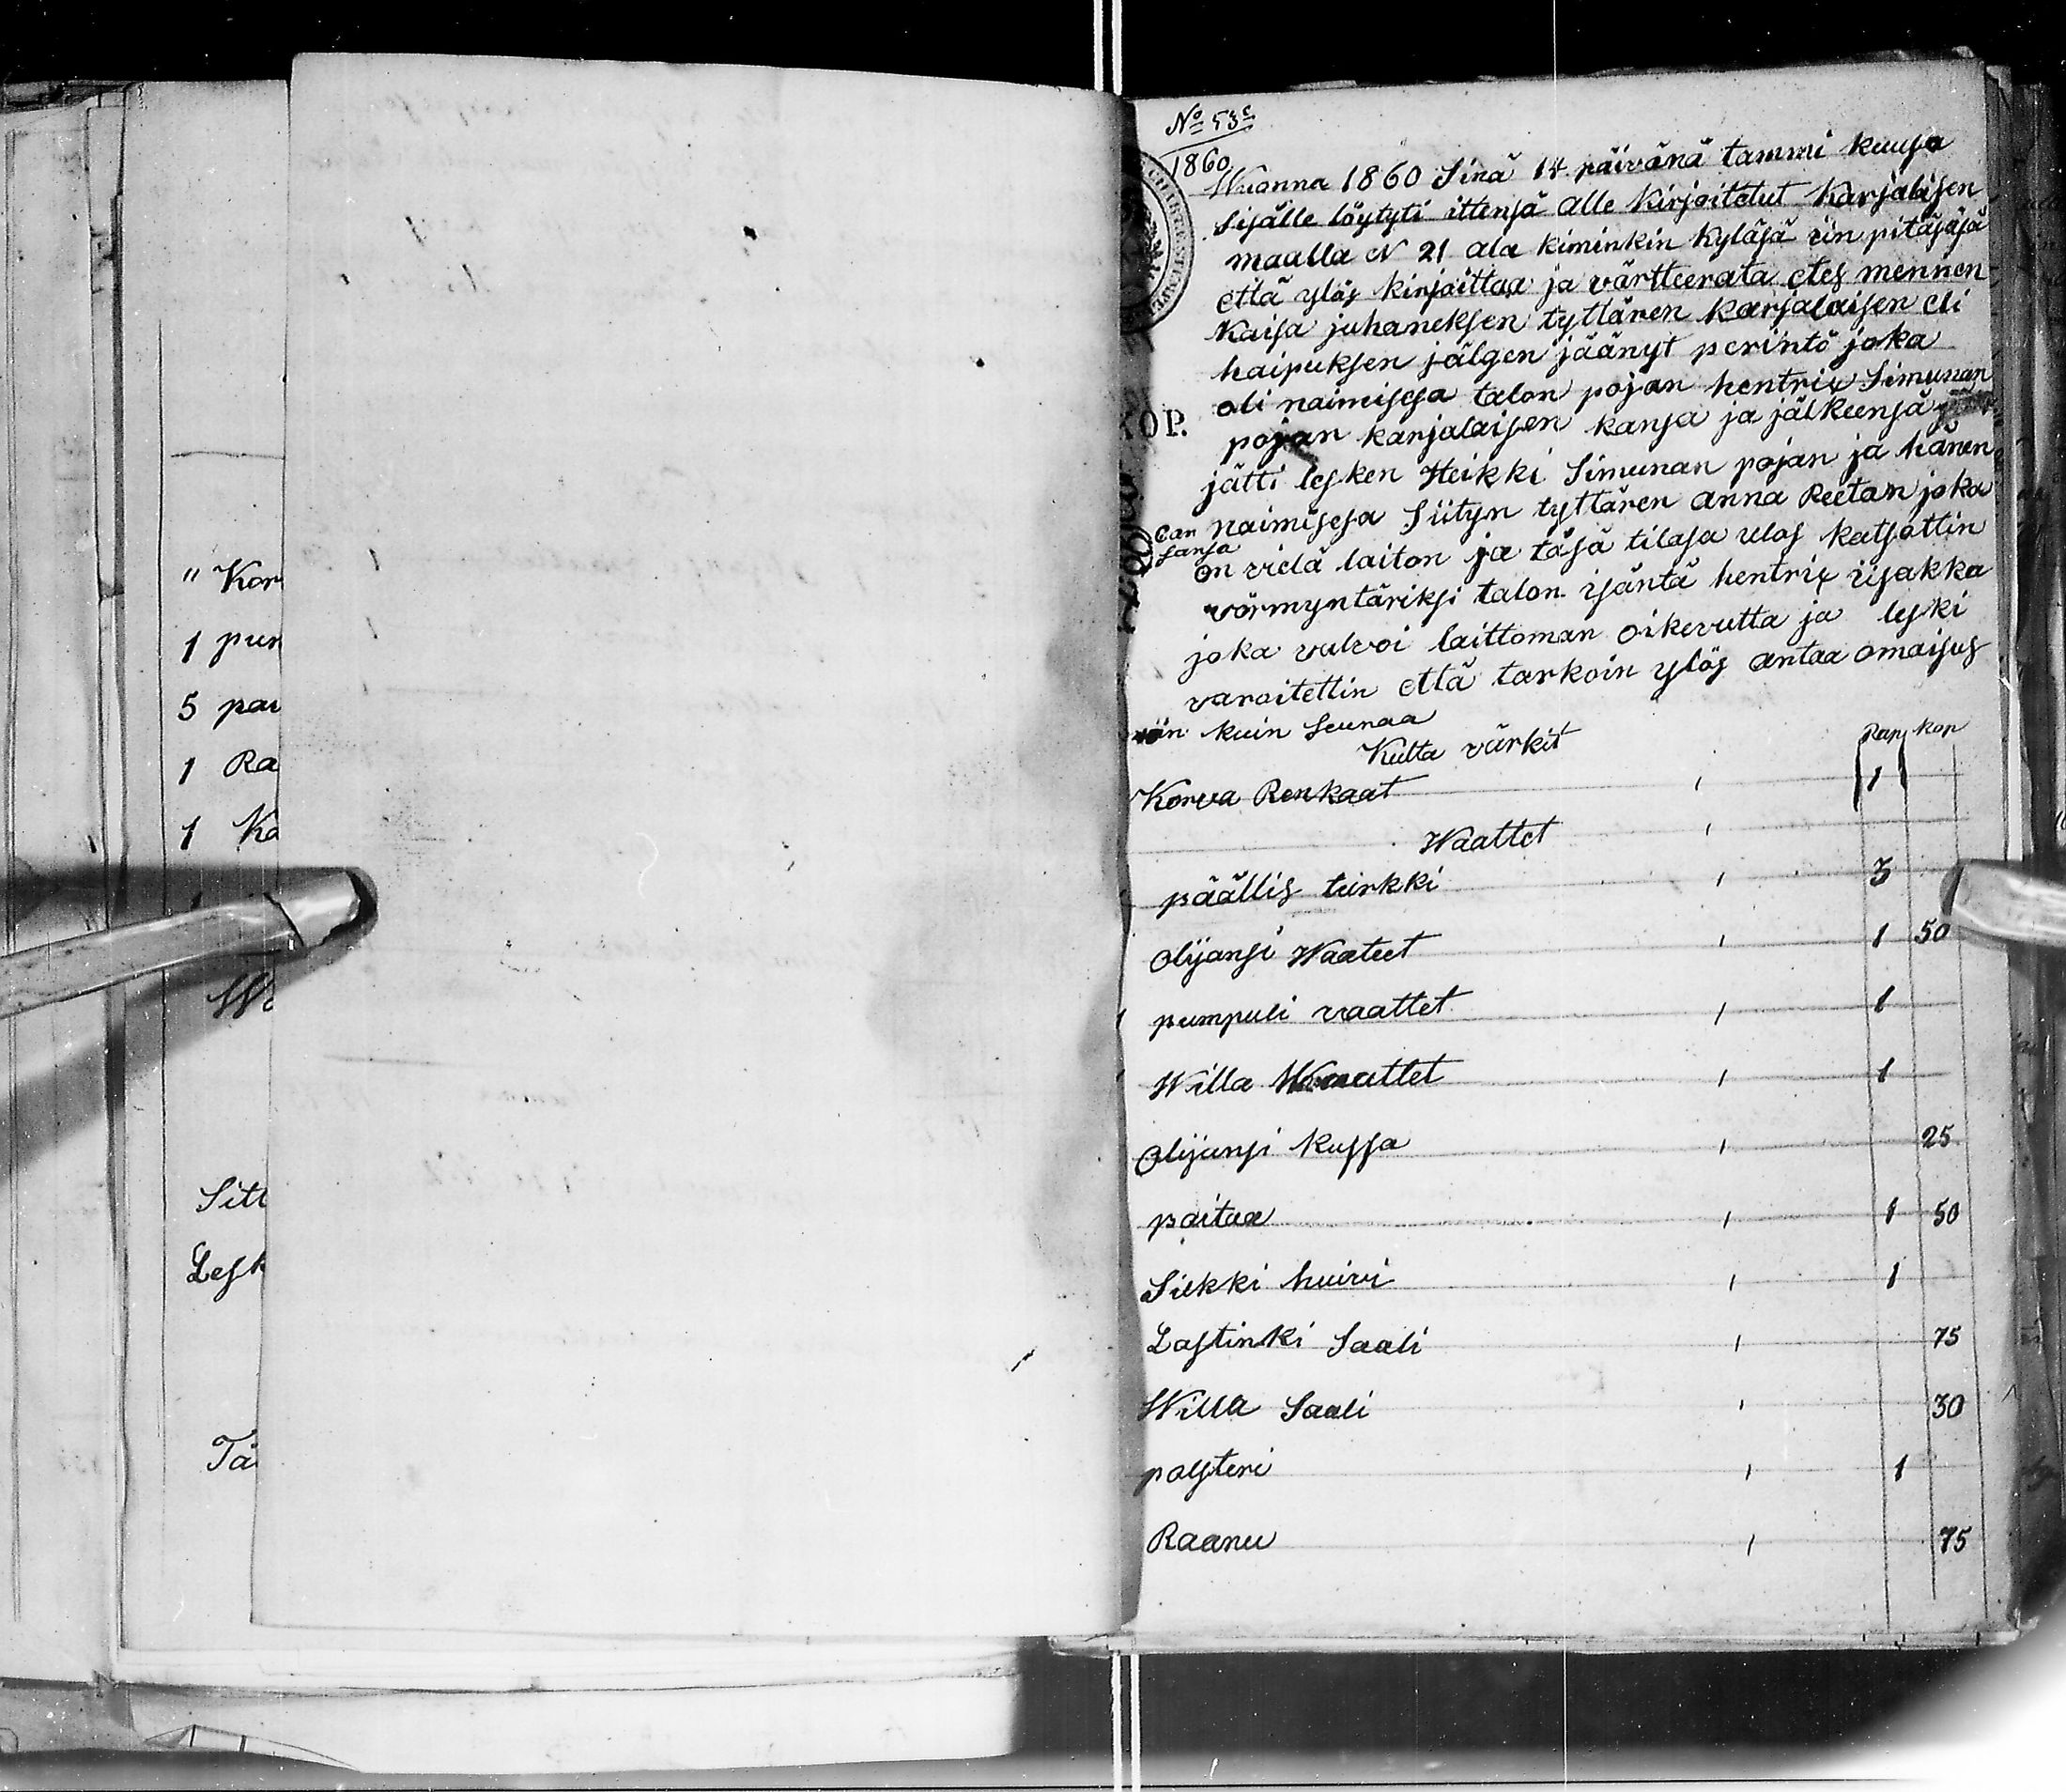 " Kor
1 pun
5 pai
1 Ra
1 Ka
Wa
Sitt
Lesk
Tä
No 53
1860
KOP.
Wuonna 1860 Sinä 14 päivänä tammi kuusa
Sisälle löytyti ittensä alle kirjoitetut Karjalaisen
maalla N 21 ala kiminkin kyläsä iin pitäjäsä
että ylös kirjoittaa ja värtteerata etes mennen
Kaisa juhaneksen tyttären karjalaisen eli
haipuksen jälgen jäänyt perintö joka
oli naimisesa talon pojan hentrix Simunan
pojan karjalaisen kansa ja jälkeensä
jätti lesken Heikki Simunan pojan ja hänen
Can
Sansa
naimisesa Siityn tyttären anna Reetan joka
on vielä laiton ja täsä tilasa ulos katsottin
vörmyntäriksi talon isäntä hentrix iisakka
joka valvoi laittoman oikevutta ja leski
varoitettin että tarkoin ylös antaa omaisus
niin kuin Seuraa
Kulta värkit Rup kop
Korva Renkaat 1 1
Waattet 1
päällis turkki 1 3
Olijansi Waateet 1 1 50
pumpuli vaattet 1 1
Willa Waattet 1 1
Olijansi kussa 1 25
paitaa 1 1 50
Silkki huivi 1 1
Lastinki Saali 1 75
Willa Saali 1 30
polsteri 1 1
Raanu 1 75